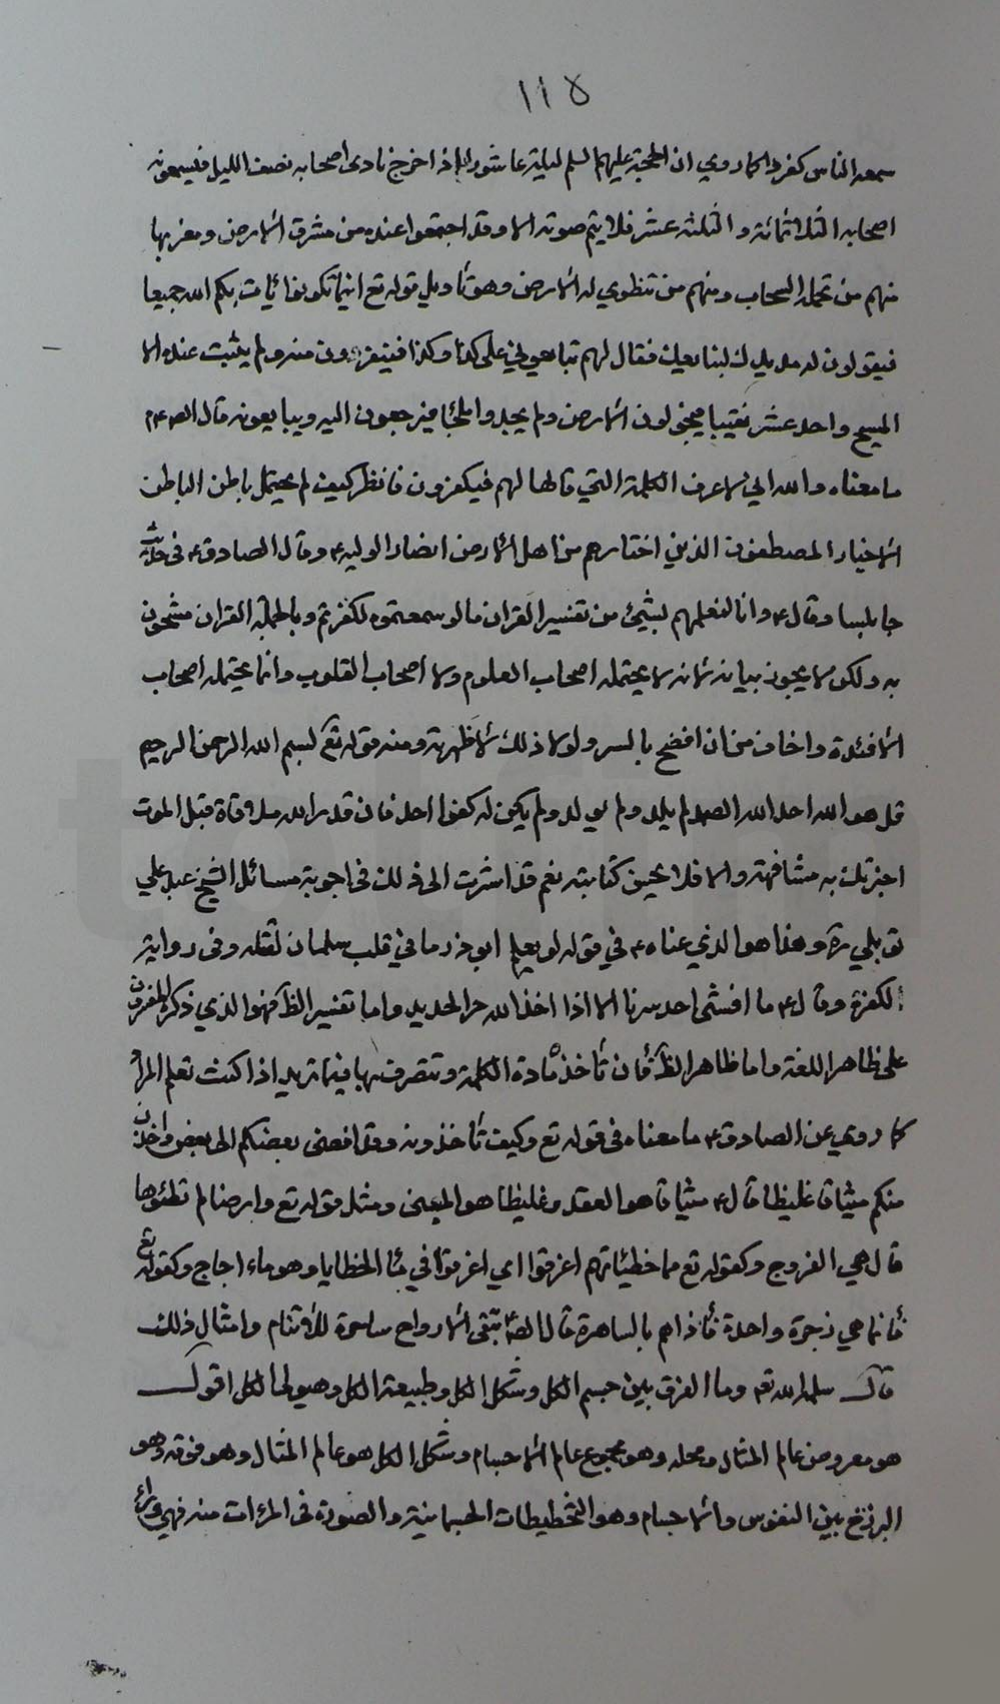 ١١٥
سمعه الناس كفروا كما روي ان الحجة عليهم السلم ليلة عاشورا اذا خرج نادى اصحابه نصف الليل فيسمعونه
اصحابه الثلاثمائة والثلثة عشر فلا يتم صوته الا وقد اجتمعوا عنده من مشرق الارض ومغربها
منهم من تحمله السحاب ومنهم من تنطوي له الارض وهو تاويل قوله تع اينما تكونوا يأت بكم الله جميعا
فيقولون له مد يدك لنبايعك فقال لهم تبايعوني على كذا وكذا فينفرون منه ولم يثبت عنده الا
المسيح واحد عشر نقيبا فيجولون الارض ولم يجدوا ملجأ فيرجعون اليه ويبايعونه قال الص ع م
ما معناه والله اني لاعرف الكلمة التي قالها لهم فيكفرون فانظر كيف لم يحتمل باطن الباطن
الاخيار المصطفون الذين اختارهم من اهل الارض انصارا لوليه ع وقال الصادق ع في حديث
جابلسا وقال ع وانا لنعلمهم بشيئ من تفسير القران ما لو سمعتموه لكفرتم وبالجملة القران مشحون
به ولكن لا يجوز بيانه لانه لا يحتمله اصحاب العلوم ولا اصحاب القلوب وانما يحتمله اصحاب
الافئدة واخاف من ان افضح بالسر ولولا ذلك لاظهرته ومنه قوله تع بسم الله الرحمن الرحيم
قل هو الله احد الله الصمد لم يلد ولم يولد ولم يكن له كفوا احد فان قدر الله ملاقاة قبل الموت
اخبرتك به مشافهة والا فلا يحين كتابته نعم قد اشرت الى ذلك في اجوبة مسائل الشيخ عبد علي
توبلي ره وهذا هو الذي عناه ع في قوله لو يعلم ابو ذر ما في قلب سلمان لقتله وفي رواية
لكفره وقال ع ما افشى احد سرنا الا اذاقه الله حر الحديد واما تفسير الظ فهو الذي ذكره المفسرون
على ظاهر اللغة واما ظاهر الظ فأن تأخذ مادة الكلمة وتتصرف بها فيما تريد اذا كنت تعلم المراد
كما روي عن الصادق ع ما معناه في قوله تع وكيف تأخذونه وقد افضى بعضكم الى بعض واخذن
منكم ميثاقا غليظا قال ع ميثاقا هو العقد وغليظا هو المعنى ومثل قوله تع وارضا لم تطئوها
قال هي الفروج وكقوله تع مما خطيئاتهم اغرقوا اي اغرقوا في ماء الخطايا وهو ماء اجاج وكقوله تع
فأنما هي زجرة واحدة فأذا هم بالساهرة قال الص ع تبقى الارواح ساهرة لا تنام وامثال ذلك
قال سلمه الله تع وما الفرق بين جسم الكل وشكل الكل وطبيعة الكل وهيولى الكل اقول
هو معروض عالم المثال ومحله وهو مجموع عالم الاجسام وشكل الكل هو عالم المثال وهو فوقه وهو
البرزخ بين النفوس والاجسام وهو التخطيطات الجسمانية والصورة في المرءات منه فهي